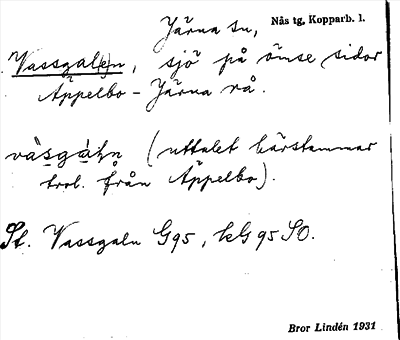 Järna sn, Nås tg, Kopparb. l.
Vassgal(e)n, sjö på ömse sidor
Äppelbo - Järna rå.
vàsgáln (uttalet härstammar
trol. från Äppelbo).
St. Vassgaln G95, kG95 SO.
Bror Lindén 1931